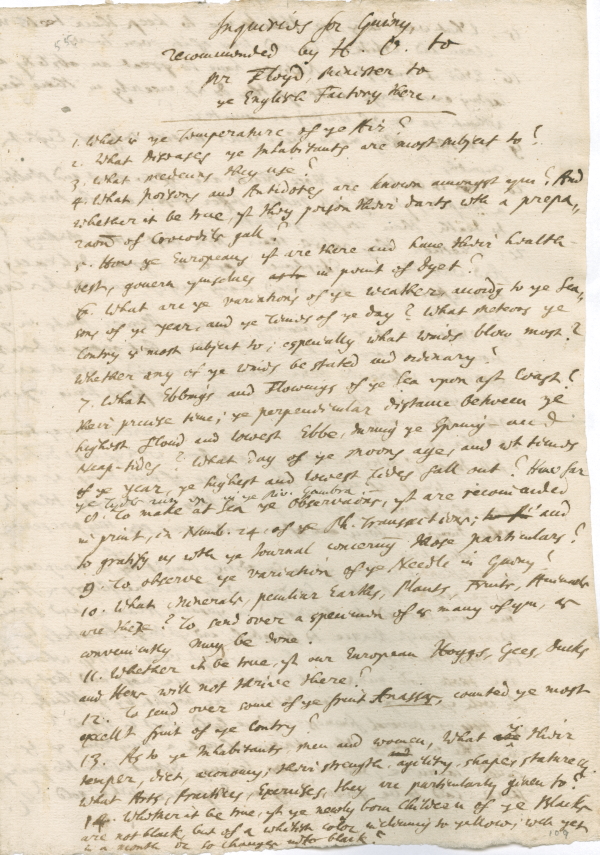 Inquiries for Guiny,
recommended by H. O. to
Mr Floyd Minister to
ye English Factory there.
1. What is ye Temperature of ye Air?
2. What diseases ye Inhabitants are most subject to?
3. What medecins they use?
4. What poisons and Antidotes are known amongst ym? And
whether it be true, yt they poison their darts with a prepa-
raõn of Crocodils gall?
5. How ye Europeans yt are there and have their health
best, govern ymselves in point of Dyet?
6. What are ye variations of ye weather, accordg to ye Sea-
sons of ye year, and ye times of ye day? What meteors ye
Contry is most subject to; especially what winds blow most?
Whether any of ye winds be stated and ordinary?
7. What Ebbings and Flowings of ye Sea upon yt Coast?
their precise time; ye perpendicular distance between ye
highest Floud and lowest Ebbe, during ye Spring- and
Neap-tides? What day of ye moons age, and wt times
of ye year, ye highest and lowest tides fall out? How far
ye Tydes run up in ye Riv. Gambra
8. To make at Sea ye observaõns, yt are recom̃ended
in print, in Numb. 24. of ye Ph. Transactions; and
to gratify us with ye Journal concerng those particulars?
9. To observe ye variation of ye Needle in Guiny?
10. What Minerals, peculiar Earths, Plants, Fruts, Animals
are there? To send over a specimen of as many of ym, as
conveniently may be done.
11. Whether it be true, yt our European Hoggs, Gees, Ducks
and Hens will not thrive there?
12. To send over some of ye fruit Anassas, counted ye most
excellt fruit of ye Contry?
13. As to ye Inhabitants men and women, What ye their
temper, diet, œconomy; their strength and agility, shape, stature &c.
What Arts, Practices, Exercises, they are particularly given to?
14. Whether it be true, yt ye newly born Children of ye Blacks
are not black, but of a whitish color, inclining to yellow; wch yet
in a month or so changes into black?
109